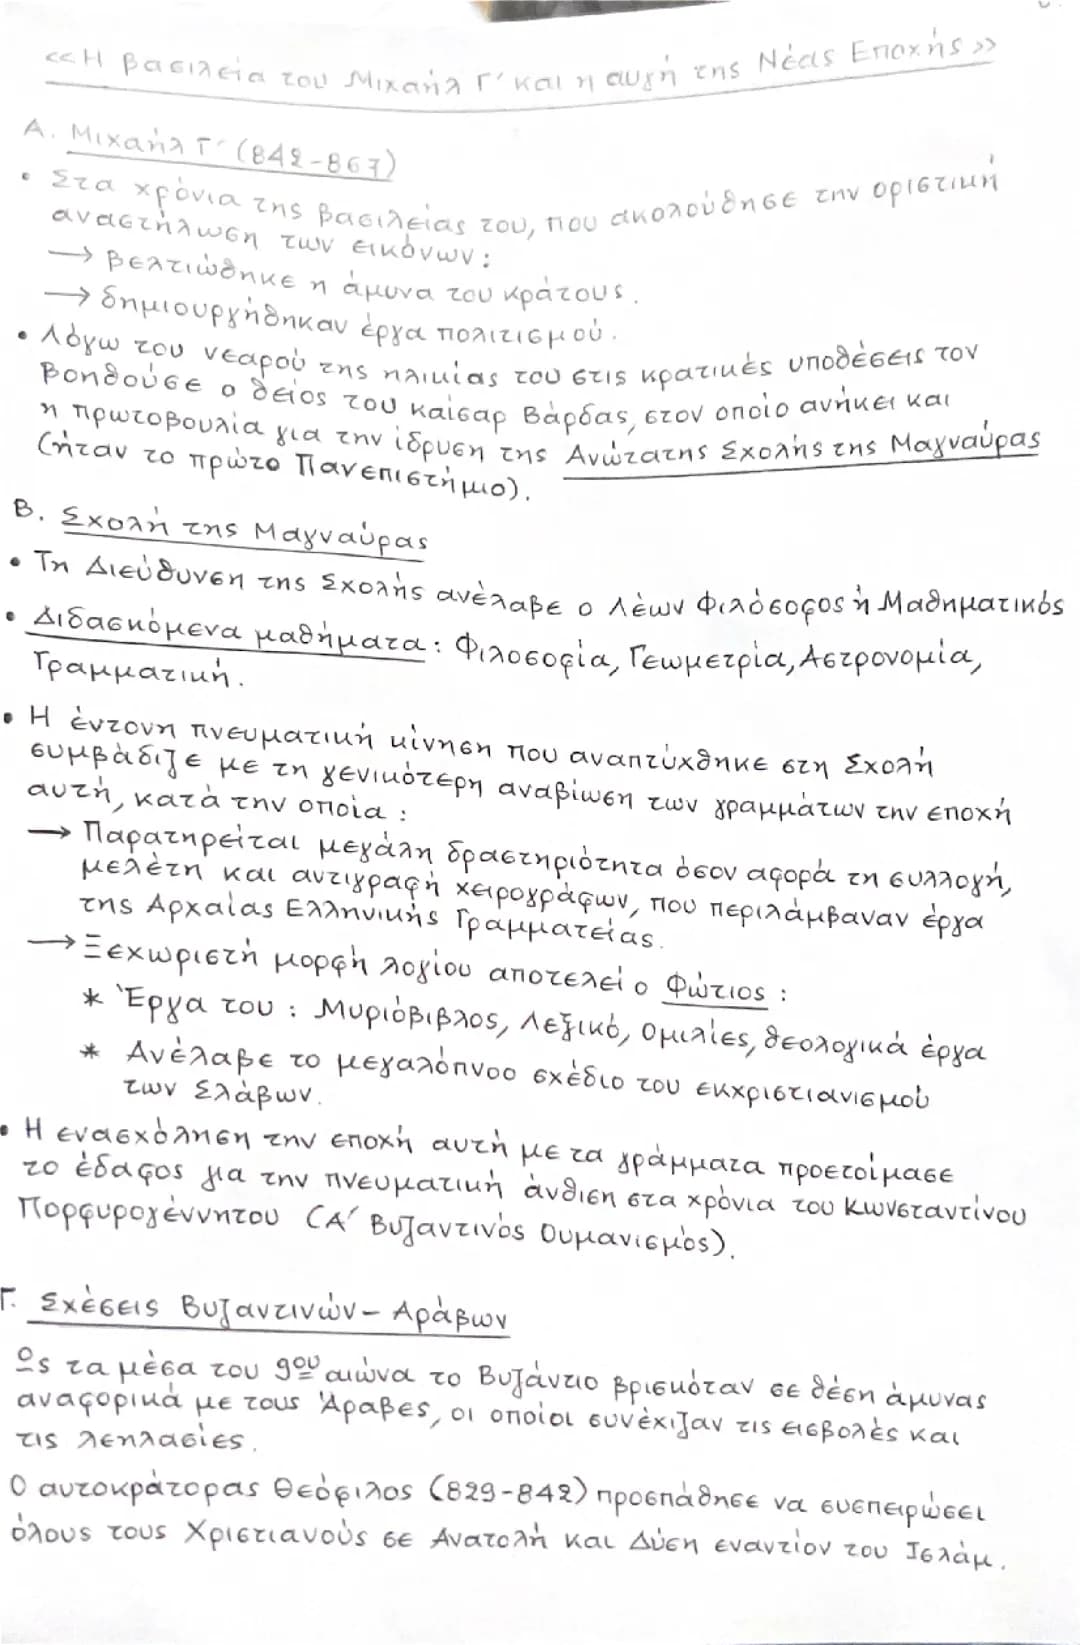 <<Η βασιλεία του Μιχαήλ Γ' και η αυγή της Νέας Εποχής>>
Α. Μιχαήλ Γ' (842-867)
• Στα χρόνια της βασιλείας του, που ακολούθησε την οριστική
αναστήλωση των εικόνων:
→ βελτιώθηκε η άμυνα του κράτους.
→ δημιουργήθηκαν έργα πολιτισμού.
• Λόγω του νεαρού της ηλικίας του στις κρατικές υποθέσεις τον
βοηθούσε ο θείος του καίσαρ Βάρδας, στον οποίο ανήκει και
η πρωτοβουλία για την ίδρυση της Ανώτατης Σχολής της Μαγναύρας
(ήταν το πρώτο Πανεπιστήμιο).
Β. Σχολή της Μαγναύρας
• Τη Διεύθυνση της Σχολής ανέλαβε ο Λέων Φιλόσοφος ή Μαθηματικός
• Διδασκόμενα μαθήματα: Φιλοσοφία, Γεωμετρία, Αστρονομία,
Γραμματική.
• Η έντονη πνευματική κίνηση που αναπτύχθηκε στη Σχολή
συμβάδιζε με τη γενικότερη αναβίωση των γραμμάτων την εποχή
αυτή, κατά την οποία:
→ Παρατηρείται μεγάλη δραστηριότητα όσον αφορά τη συλλογή,
μελέτη και αντιγραφή χειρογράφων, που περιλάμβαναν έργα
της Αρχαίας Ελληνικής Γραμματείας.
→ Ξεχωριστή μορφή λογίου αποτελεί ο Φώτιος:
* Έργα του: Μυριόβιβλος, Λεξικό, Ομιλίες, θεολογικά έργα
* Ανέλαβε το μεγαλόπνοο σχέδιο του εκχριστιανισμού
των Σλάβων.
• Η ενασχόληση την εποχή αυτή με τα γράμματα προετοίμασε
το έδαφος για την πνευματική άνθιση στα χρόνια του Κωνσταντίνου
Πορφυρογέννητου (Α' Βυζαντινός Ουμανισμός).
Γ. Σχέσεις Βυζαντινών - Αράβων
Ως τα μέσα του 9ου αιώνα το Βυζάντιο βρισκόταν σε θέση άμυνας
αναφορικά με τους Άραβες, οι οποίοι συνέχιζαν τις εισβολές και
τις λεηλασίες.
Ο αυτοκράτορας Θεόφιλος (829-842) προσπάθησε να συσπειρώσει
όλους τους Χριστιανούς σε Ανατολή και Δύση εναντίον του Ισλάμ.